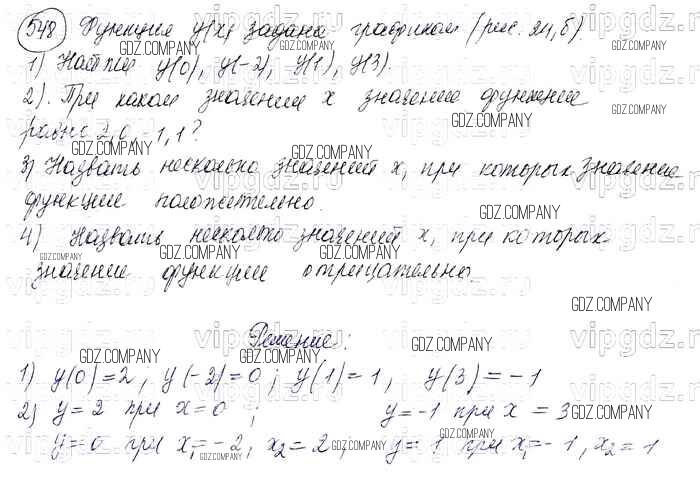 548 Функция y(x) задана графиком (рис. 21, б).
1) Найти y(0), y(-2), y(1), y(3).
2). При каком значении x значение функции
равно 2, 0, -1, 1?
3) Назвать несколько значений x, при которых значение
функции положительно.
4) Назвать несколько значений x, при которых
значение функции отрицательно.
Решение:
1) y(0)=2, y(-2)=0; y(1)=1, y(3)=-1
2) y=2 при x=0; y=-1 при x=3
y=0 при x₁=-2, x₂=2, y=1 при x₁=-1, x₂=1
GDZ.COMPANY
vipgdz.ru